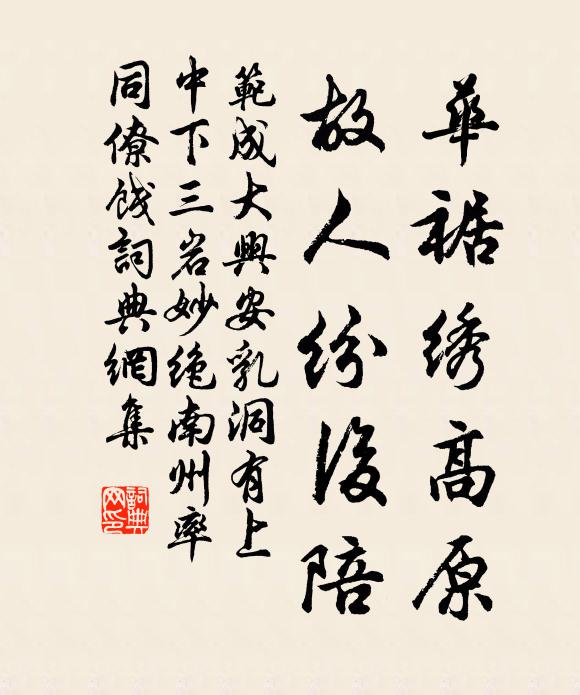 華裾綉高原
故人紛後陪
範成大興安乳洞有上
中下三岩妙絶南州率
同僚餞詞典網集
詞典
网印